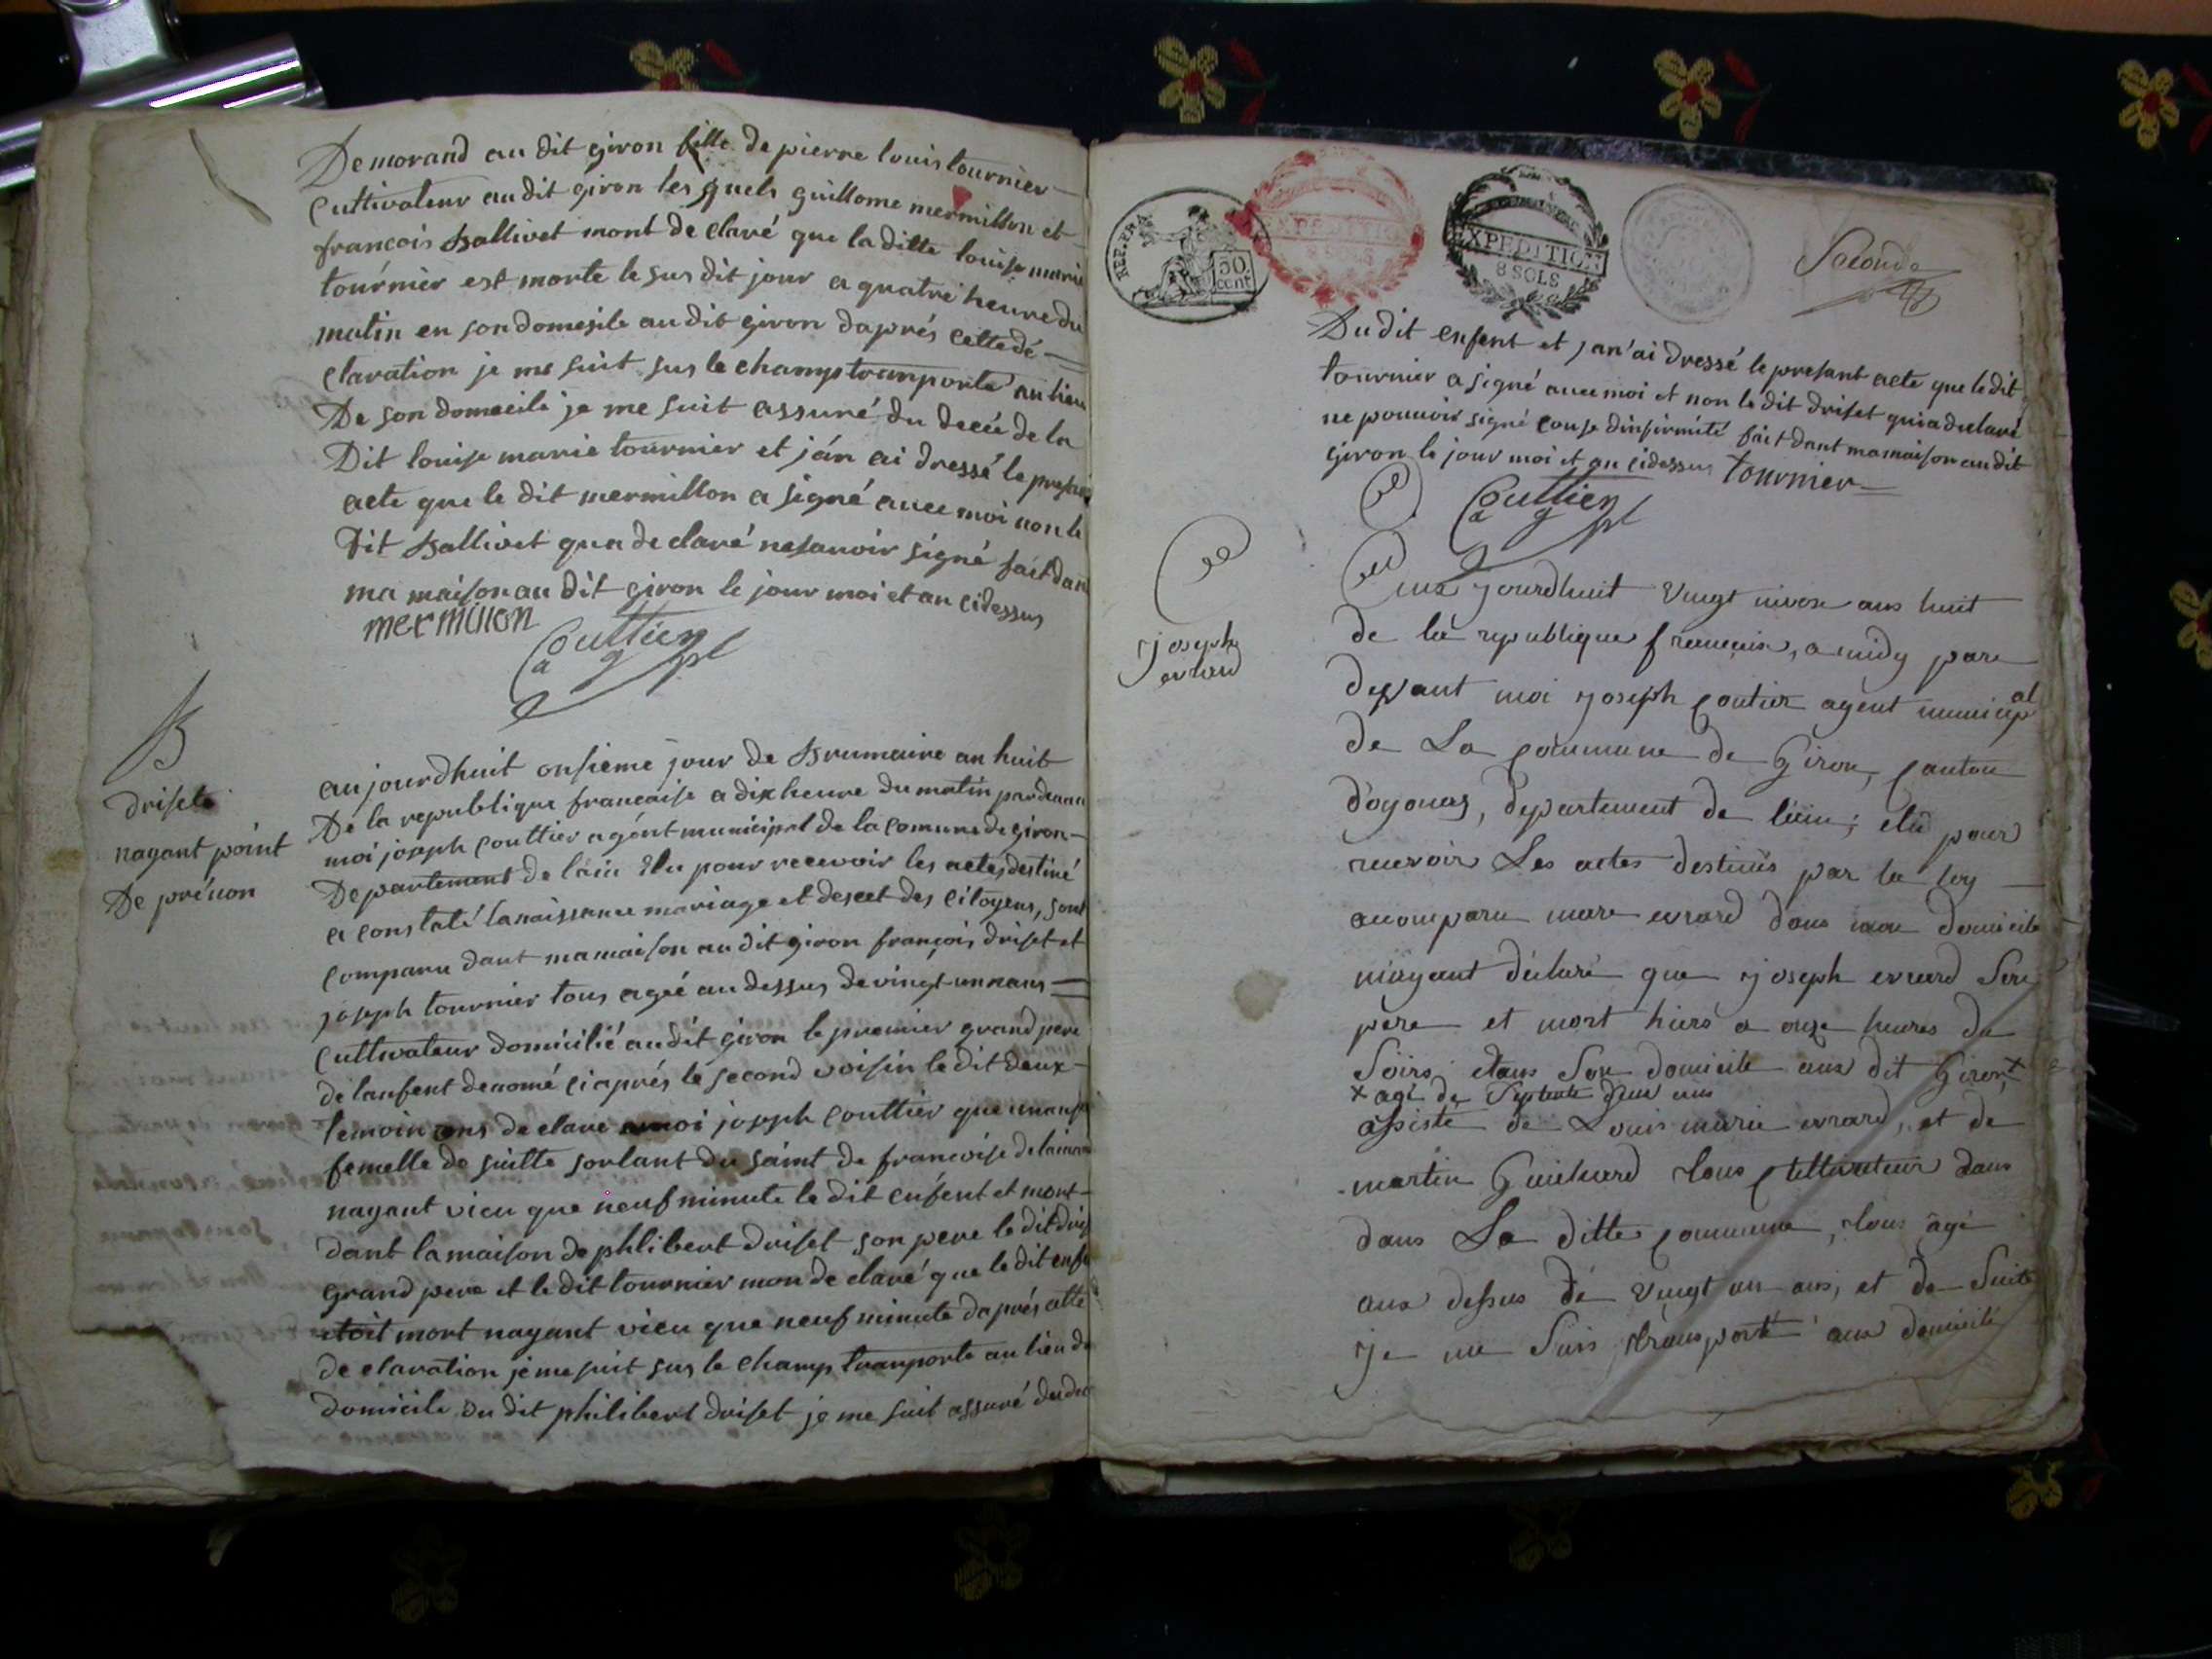 De morand au dit giron fille de pierre louis tournier
Cultivateur au dit giron les quels guillome mermillon et
francois Ballivet mont de claré que la ditte louise marie
tournier est morte le sus dit jour a quatre heure du
matin en son domesile au dit giron daprés cette dé
claration je me suit sus le champ tramporté au lieu
De son domecile je me suit assuré du decée de la
Dit louise marie tournier et ján ai dressé le presant
acte que le dit mermillon a signé avec moi non le
Dit Ballivet qu a de claré ne savoir signé fait dan
ma maison au dit giron le jour moi et an cidessus
mermillon
Couttier
a g pl
driset
nagant point
De prénon
aujourdhuit onsieme jour de Brumaire an huit
De la republique francaise a dix heure du matin par devan
moi joseph couttier agént municipal de la comune de giron
Departement de lain Elu pour recevoir les actes destiné
a constaté la naissance mariage et descet des citoyens, sont
comparu dant ma maison au dit giron françois driset et
joseph tournier tous ageé au dessus de vingt un nans
Cultivateur domicilié au dit giron le premier grand pere
de lanfent denomé ci aprés le second voisin le dit deux
temoin ons de clare a moi joseph couttier que un anfan
femelle de suitte sortant du saint de francoise
nagant vicu que neuf minute le dit enfent et mort
dant la maison de phlibert driset son pere le dit dris
grand pere et le dit tournier mon de claré que le dit enfe
etoit mort nagant vicu que neuf minute daprés cette
de claration je me suit sus le champ tranporte au lieu de
domicile du dit philibert driset je me suit assuré du dec
REP. FRA.
50
cent
EXPEDITION
EXPEDITION
8 SOLS
Seconde
Du dit enfent et jan'ai dressé le presant acte que le dit
tournier a signé avec moi et non le dit driset qui a declaré
ne pouvoir signé couse dinfirmité fait dant ma maison au dit
giron le jour moi et an cidessus tournier
Couttier
a g pl
joseph
evrard
aux jourdhuit vingt nivose ans huit
de la republique francaise, a midy pare
devant moi joseph coutier agent municipal
de La commune de Giron, canton
d'oyonas, departement de l'ain; elu pour
recevoir Les actes destinés par la loy
a comparu marc evrard dans mon domicile
m'ayant declaré que joseph evrard Son
père et mort hiers a onze heures du
Soirs dans Son domicile aux dit Giron x
x agé de Septante deux ans
assisté de Louis marie evrard, et de
martin Guichard tous cultivateur dans
dans La ditte commune, tous agé
aux dessus dé vingt un ans, et de Suite
je me Suis transporté aux domicile